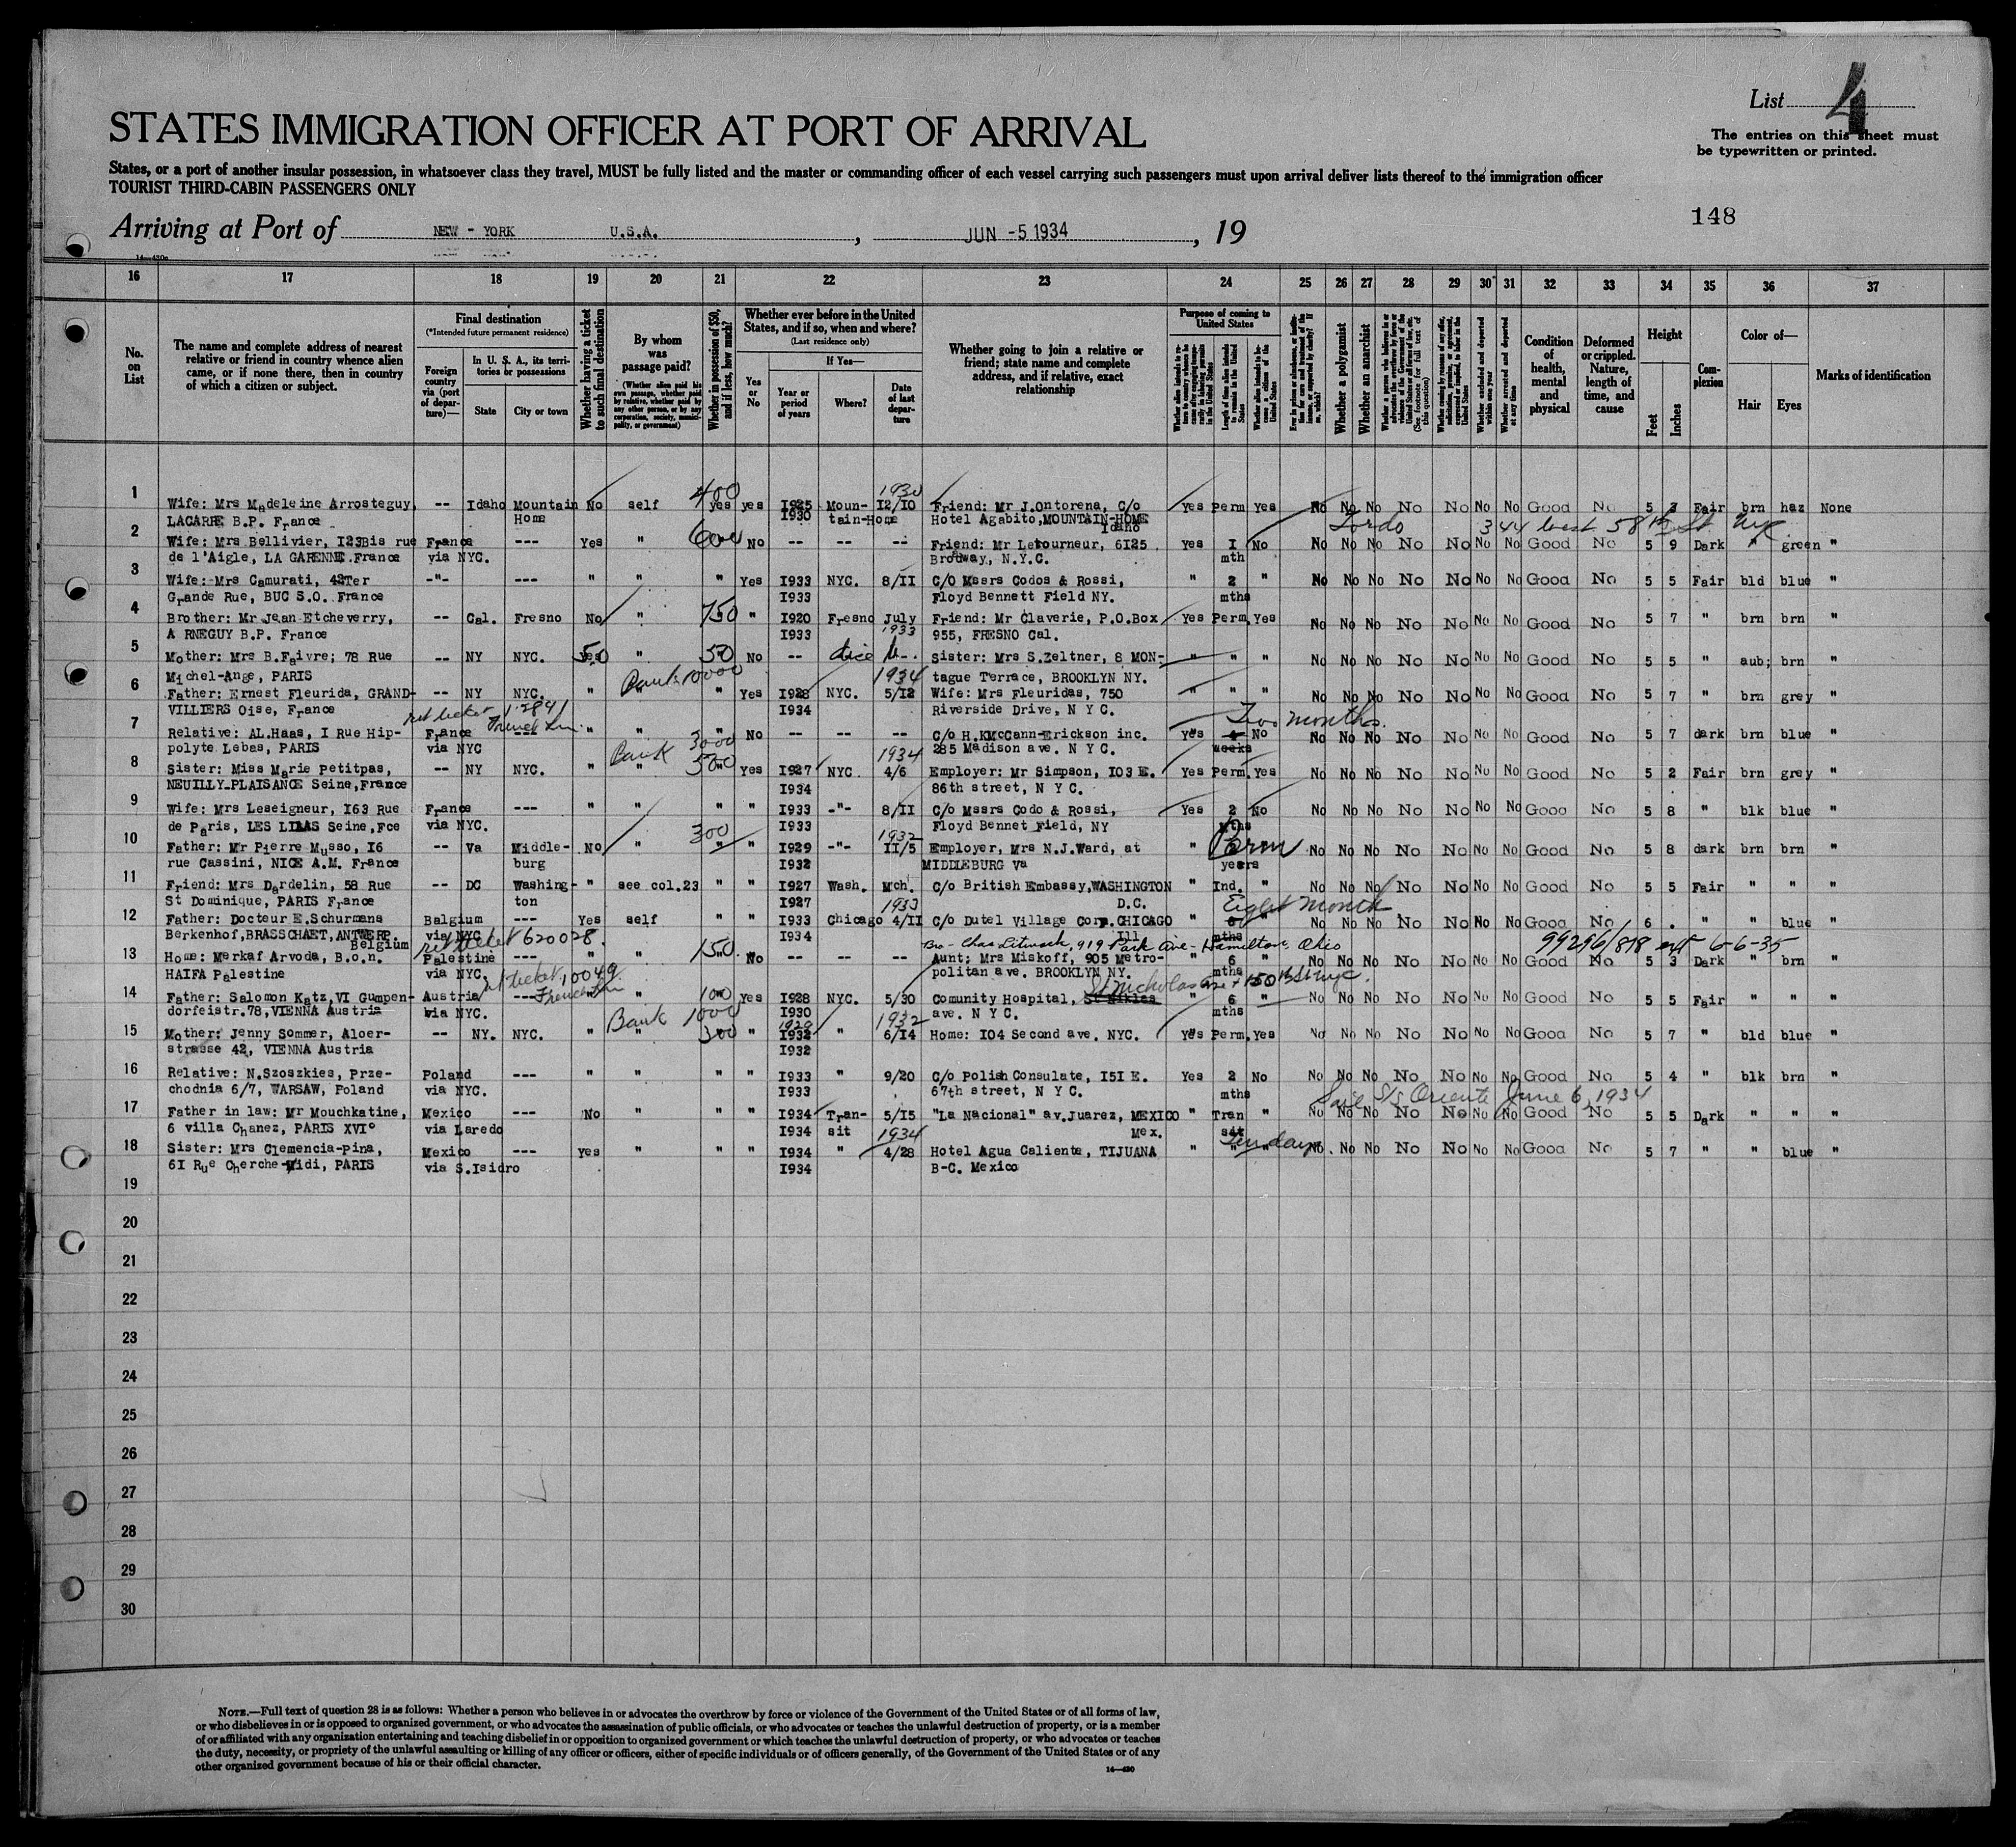 List 4
The entries on this sheet must
be typewritten or printed.
STATES IMMIGRATION OFFICER AT PORT OF ARRIVAL
States, or a port of another insular possession, in whatsoever class they travel, MUST be fully listed and the master or commanding officer of each vessel carrying such passengers must upon arrival deliver lists thereof to the immigration officer
TOURIST THIRD-CABIN PASSENGERS ONLY
148
Arriving at Port of NEW - YORK U.S.A. , JUN -5 1934 , 19
16 17 18 19 20 21 22 23 24 25 26 27 28 29 30 31 32 33 34 35 36 37
No. on List
The name and complete address of nearest relative or friend in country whence alien came, or if none there, then in country of which a citizen or subject.
Final destination
(*Intended future permanent residence)
Foreign country via (port of departure)—
In U. S. A., its territories or possessions
State
City or town
Whether having a ticket to such final destination
By whom was passage paid?
(Whether alien paid his own passage, whether paid by relative, whether paid by any other person, or by any corporation, society, municipality, or government)
Whether in possession of $50, and if less, how much?
Whether ever before in the United States, and if so, when and where?
(Last residence only)
Yes or No
If Yes—
Year or period of years
Where?
Date of last departure
Whether going to join a relative or friend; state name and complete address, and if relative, exact relationship
Purpose of coming to United States
Length of time alien intends to remain in the United States
Whether alien intends to become a citizen of the United States
Whether a polygamist
Whether an anarchist
(See footnote for full text of this question)
Whether arrested and deported at any time
Condition of health, mental and physical
Deformed or crippled. Nature, length of time, and cause
Height
Feet
Inches
Complexion
Color of—
Hair
Eyes
Marks of identification
1 Wife: Mrs Madeleine Arrosteguy, -- Idaho Mountain No self 400 yes yes I925 Moun- I2/I0 1930 Friend: Mr J.Ontorena, C/o Yes Perm Yes No No No No No No No Good No 5 3 Fair brn haz None
LACARRE B.P. France Home I930 tain-Home Hotel Agabito,MOUNTAIN-HOME Idaho
344 West 58th St NYC
2 Wife: Mrs Bellivier, I23Bis rue France Yes " 600 No -- -- -- Friend: Mr Letourneur, 6I25 Yes I No No No No No No No No Good No 5 9 Dark " green "
de l'Aigle, LA GARENNE.France via NYC. Brodway, N.Y.C. mth
3 Wife: Mrs Camurati, 42Ter -"- --- " " " Yes I933 NYC. 8/II C/O Mssrs Codos & Rossi, " 2 " No No No No No No No Good No 5 5 Fair bld blue "
Grande Rue, BUC S.O. France I933 Floyd Bennett Field NY. mths
4 Brother: Mr Jean Etcheverry, -- Cal. Fresno No " 750 " I920 Fresno July 1933 Friend: Mr Claverie, P.O.Box Yes Perm Yes No No No No No No No Good No 5 7 " brn brn "
A RNEGUY B.P. France I933 955, FRESNO Cal.
5 Mother: Mrs B.Faivre; 78 Rue -- NY NYC. Yes " 50 No -- -- Sister: Mrs S.Zeltner, 8 MON- " " " No No No No No No No Good No 5 5 " aub; brn "
Michel-Ange, PARIS Bank 10000 1934 tague Terrace, BROOKLYN NY.
6 Father: Ernest Fleurida, GRAND- -- NY NYC. " " " Yes I928 NYC. 5/I2 Wife: Mrs Fleuridas, 750 " " " No No No No No No No Good No 5 7 " brn grey "
VILLIERS Oise, France I934 Riverside Drive, N Y C.
ret ticket French Line Two months.
7 Relative: AL.Haas, I Rue Hip- France --- " " " No -- -- -- C/o H.KMcCann-Erickson inc. Yes 4 No No No No No No No No Good No 5 7 dark brn blue "
polyte Lebas, PARIS via NYC Bank 3000 1934 285 Madison ave. N Y C. weeks
8 Sister: Miss Marie Petitpas, -- NY NYC. " " 500 Yes I927 NYC 4/6 Employer: Mr Simpson, I03 E. Yes Perm. Yes No No No No No No No Good No 5 2 Fair brn grey "
NEUILLY-PLAISANCE Seine,France I934 86th street, N Y C.
9 Wife: Mrs Leseigneur, I63 Rue France --- " " " " I933 -"- 8/II C/o Mssrs Codo & Rossi, Yes 2 No No No No No No No No Good No 5 8 " blk blue "
de Paris, LES LILAS Seine,Fce via NYC. I933 Floyd Bennet Field, NY mths
10 Father: Mr Pierre Musso, I6 -- Va Middle- No " 300 " " I929 -"- II/5 1932 Employer, Mrs N.J.Ward, at " Perm No No No No No No No Good No 5 8 dark brn brn "
rue Cassini, NICE A.M. France burg I932 MIDDLEBURG Va years
11 Friend: Mrs Dardelin, 58 Rue -- DC Washing- " see col.23 " " I927 Wash. Mch. C/o British Embassy,WASHINGTON " Ind. " No No No No No No No Good No 5 5 Fair " " "
St Dominique, PARIS France ton I927 1933 D.C. Eight month
12 Father: Docteur E.Schurmans Belgium --- Yes self " " I933 Chicago 4/II C/o Dutel Village Corp.CHICAGO " 6 " No No No No No No No Good No 6 . " " blue "
Berkenhof,BRASSCHAET,ANTWERP. Belgium via NYC I934 Ill mths
ret ticket 620028. Bro- Chas Litwack, 919 Park Ave- Hamilton, Ohio 99296/818 ext 6-6-35
13 Home: Merkaf Arvoda, B.o.n. Palestine --- " " 150. No -- -- -- Aunt: Mrs Miskoff, 905 Metro- " 6 " No No No No No No No Good No 5 3 Dark " brn "
HAIFA Palestine via NYC. politan ave. BROOKLYN NY. mths
ret ticket 10049 French Line St Nicholas Ave + 150th St NYC.
14 Father: Salomon Katz,VI Gumpen- Austria --- " " 100 Yes I928 NYC. 5/30 Comunity Hospital, St Niklas " 6 " No No No No No No No Good No 5 5 Fair " " "
dorfeistr.78,VIENNA Austria via NYC. Bank 1000 I930 ave. N Y C. mths
15 Mother: Jenny Sommer, Aloer- -- NY. NYC. " " 300 " I932 " 6/I4 1932 Home: I04 Second ave. NYC. Yes Perm. Yes No No No No No No No Good No 5 7 " bld blue "
strasse 42, VIENNA Austria I932
16 Relative: N.Szoszkies, Prze- Poland --- " " " " I933 " 9/20 C/o Polish Consulate, I5I E. Yes 2 No No No No No No No No Good No 5 4 " blk brn "
chodnia 6/7, WARSAW, Poland via NYC. I933 67th street, N Y C. mths
S/S Oriente June 6, 1934
17 Father in law: Mr Mouchkatine, Mexico --- No " " " I934 Tran- 5/I5 "La Nacional" av.Juarez, MEXICO " Tran " No No No No No No No Good No 5 5 Dark " " "
6 villa Chanez, PARIS XVI° via Laredo I934 sit 1934 Mex. sit
18 Sister: Mrs Clemencia-Pina, Mexico --- Yes " " " I934 " 4/28 Hotel Agua Caliente, TIJUANA " Ten days No No No No No No No Good No 5 7 " " blue "
6I Rue Cherche-Midi, PARIS via S.Isidro I934 B-C. Mexico
19
20
21
22
23
24
25
26
27
28
29
30
NOTE.—Full text of question 28 is as follows: Whether a person who believes in or advocates the overthrow by force or violence of the Government of the United States or of all forms of law,
or who disbelieves in or is opposed to organized government, or who advocates the assassination of public officials, or who advocates or teaches the unlawful destruction of property, or is a member
of or affiliated with any organization entertaining and teaching disbelief in or opposition to organized government or which teaches the unlawful destruction of property, or who advocates or teaches
the duty, necessity, or propriety of the unlawful assaulting or killing of any officer or officers, either of specific individuals or of officers generally, of the Government of the United States or of any
other organized government because of his or their official character.
14—430